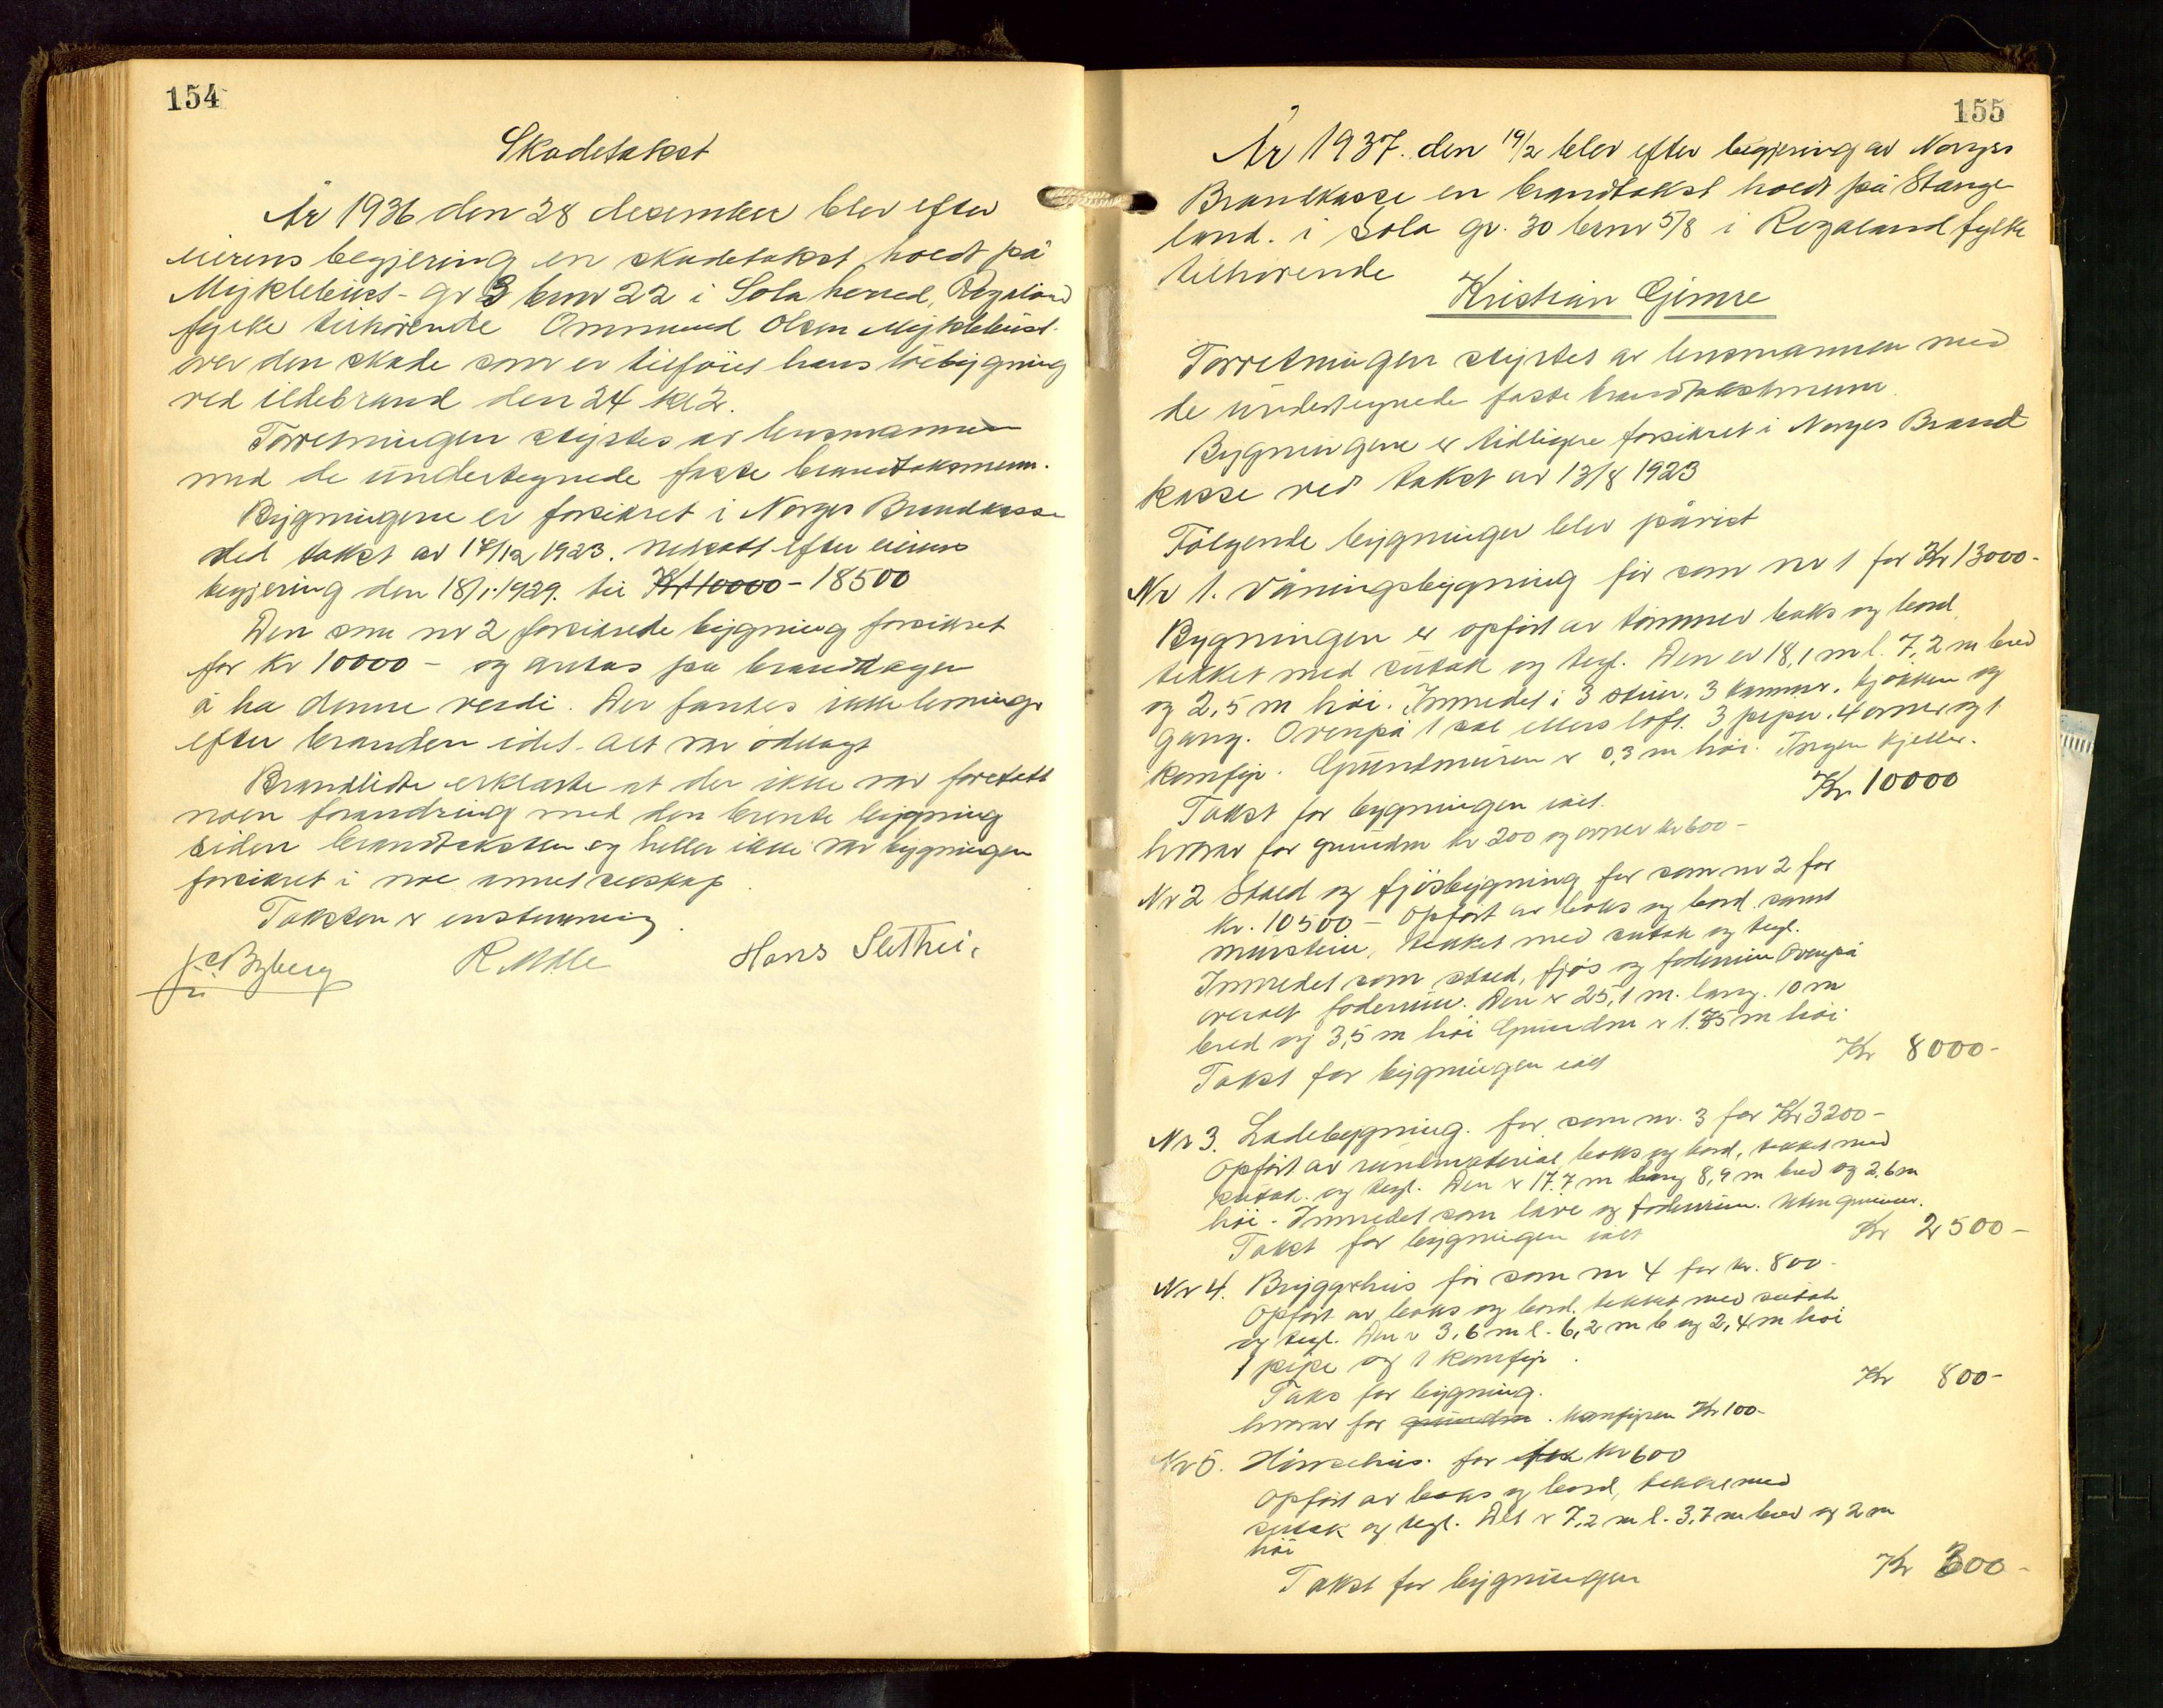 154
Skadetakst
År 1936 den 28 desember blev efter
eierens begjering en skadetakst holdt på
Myklebust - gr 3 brnr 22 i Sola herred, Rogaland
fylke tilhørende Ommund Olsen Myklebust
over den skade som er tilføiet hans løebygning
ved ildebrand den 24 kl 2.
Forretningen styrtes av lensmannen
med de undertegnede faste brandtaksmenn.
Bygningene er forsikret i Norges Brandkasse
ved takst av 17/12 1923. Nedsatt efter eierens
begjering den 18/1 1929. til Kr 10000 - 18500
Den som nr 2 forsikrede bygning forsikret
for kr 10000 - og antas på branddagen
å ha denne verdi. Der fantes ikke levninger
efter branden idet alt var ødelagt
Brandlidte erklærte at der ikke var foretatt
noen forandring med den brente bygning
siden brandtaksten og heller ikke var bygningen
forsikret i noe annet selskap.
Taksten er enstemmig.
Hans Sletthei.
155
År 1937. den 19/2 blev efter begjering av Norges
Brandkasse en brandtakst holdt på Stange
land. i Sola gr. 30 brnr 5/8 i Rogaland fylke
tilhørende
Kristian Gimre
Forretningen styrtes av lensmannen med
de undertegnede faste brandtakstmenn.
Bygningene er tidligere forsikret i Norges Brand
kasse ved takst av 13/8 1923
Følgende bygninger blev påvist
Nr 1. Våningsbygning før som nr 1 for Kr 13000-
Bygningen er opført av tømmer boks og bord,
tekket med sutak og tegl. Den er 18,1 m l. 7,2 m bred
og 2,5 m høi. Innredet i 3 stuer, 3 kammer, kjøkken og
gang. Ovenpå 1 sal ellers loft. 3 piper. 4 ovner og 1
komfyr. Grundmuren er 0,3 m høi. Ingen kjeller.
Takst for bygningen ialt. Kr. 10000
hvorav for grundm kr 200 og ovner kr 600 -
Nr 2 Stald og fjøsbygning før som nr 2 for
kr. 10500 - Opført av boks og bord samt
murstein, tekket med sutak og tegl.
Innredet som stald, fjøs og foderrum Ovenpå
overalt foderrum. Den er 25,1 m. lang. 10 m
bred og 3,5 m høi Grundm er 1.75 m høi
Takst for bygningen ialt Kr 8000-
Nr 3. Ladebygning. før som nr. 3 for Kr 3200-
Opført av rundmateriale boks og bord, tekket med
sutak. og tegl. Den er 17.7 m lang 8,9 m bred og 2,6 m
høi - Innredet som låve og foderrum. Uten grunnm.
Takst for bygningen ialt Kr 2500-
Nr 4. Bryggehus før som nr 4 for kr. 800-
Opført av boks og bord. tekket med sutak
og tegl. Den er 3,6 m l. 6,2 m b og 2,4 m høi
1 pipe og 1 komfyr.
Taks for bygning. Kr 800-
hvorav for grundm. komfyren Kr 100-
Nr 5. Hønsehus. før for kr 600
Opført av boks og bord, tekket med
sutak og tegl. Det er 7,2 m l. 3,7 m bred og 2 m
høi
Takst for bygningen Kr 300-